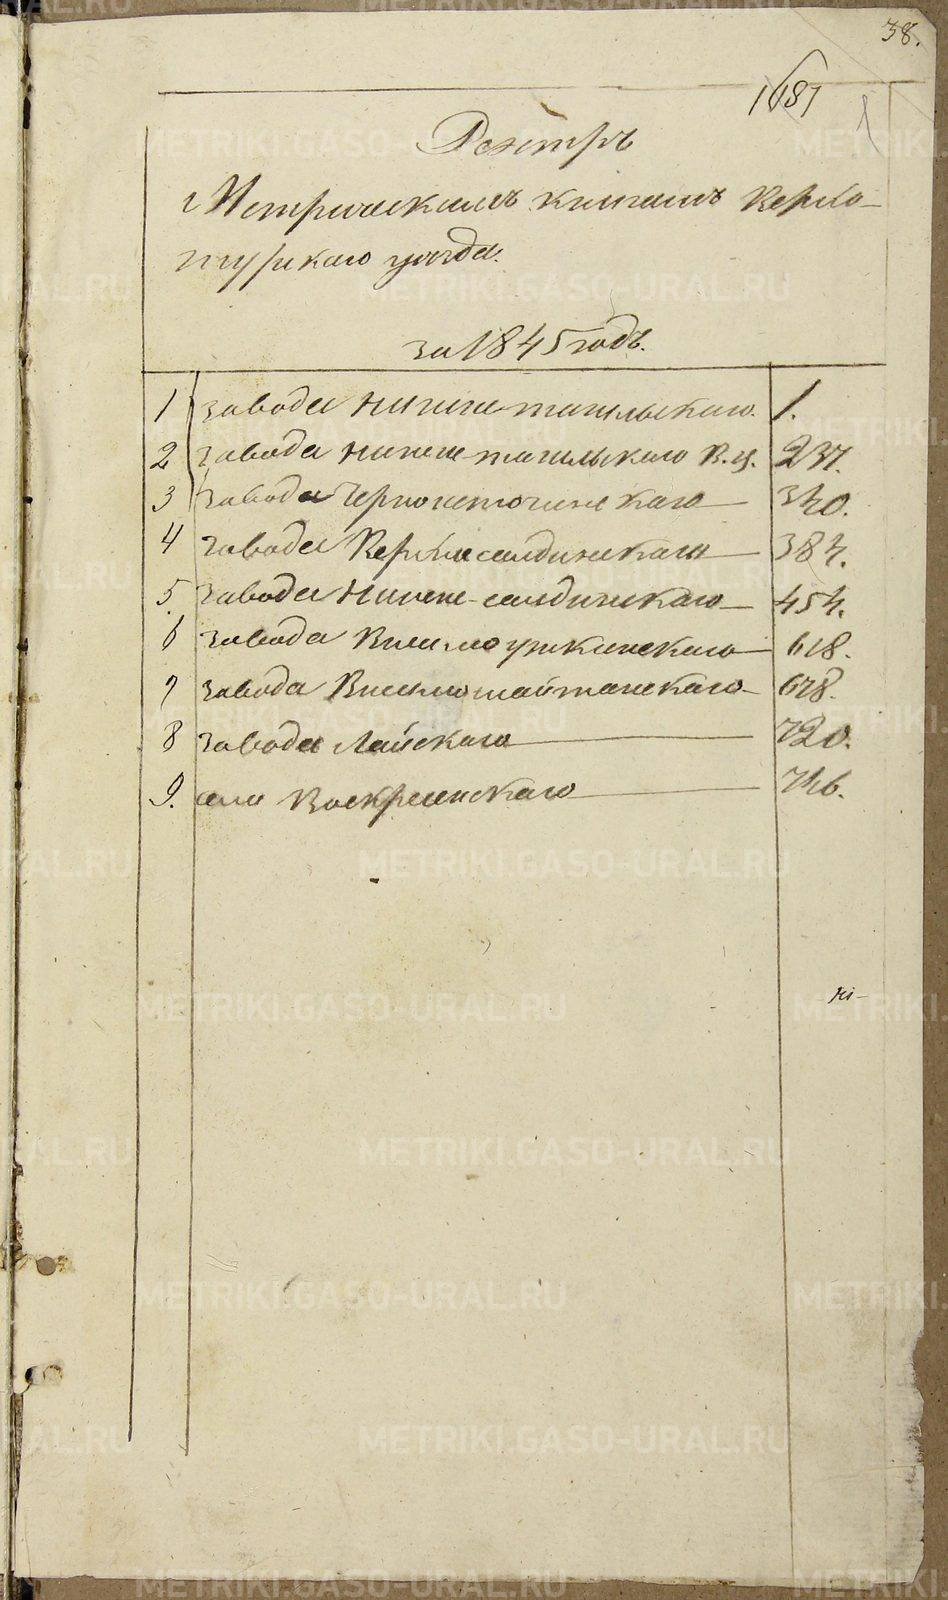 38.
1
Реэстръ
Метрическимъ книгамъ Верхо-
турскаго уѣзда.
за 1845 годъ.
1 завода Нижне-тагильскаго. 1.
2 завода Нижне-тагильскаго В.ц. 237.
3 завода Черноисточинскаго 340.
4 завода Верхнесалдинскаго 384.
5. завода Нижне-салдинскаго 454.
6 завода Висимоуткинскаго 618.
7 завода Висимошайтанскаго 678.
8 завода Лайскаго 720.
9. села Воскресенскаго 746.
METRIKI.GASO-URAL.RU